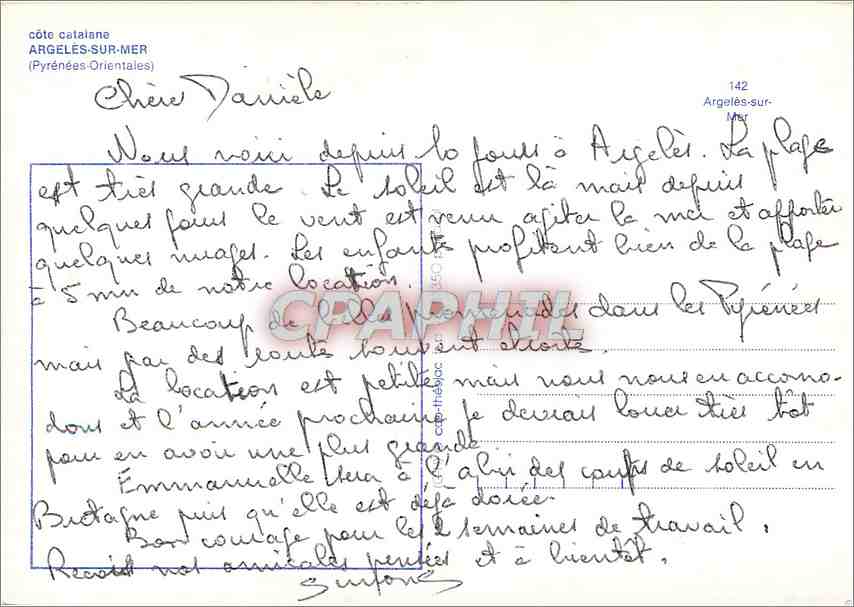 côte catalane
ARGELÈS-SUR-MER
(Pyrénées-Orientales)
142
Argelès-sur-
Mer
Chère Danièle
Nous voici depuis 10 jours à Argelès. La plage
est très grande. Le soleil est là mais depuis
quelques jours le vent est venu agiter la mer et apporter
quelques nuages. Les enfants profitent bien de la plage
à 5 mn de notre location.
Beaucoup de belles promenades dans les Pyrénées
mais par des routes souvent étroites.
La location est petite mais nous nous en accomo-
dons et l'année prochaine je devrais louer très tôt
pour en avoir une plus grande
Emmanuelle sera à l'abri des coups de soleil en
Bretagne puis qu'elle est déjà dorée.
Bon courage pour les 2 semaines de travail.
Reçois nos amicales pensées et à bientôt.
CPAPHIL
cap-théojac